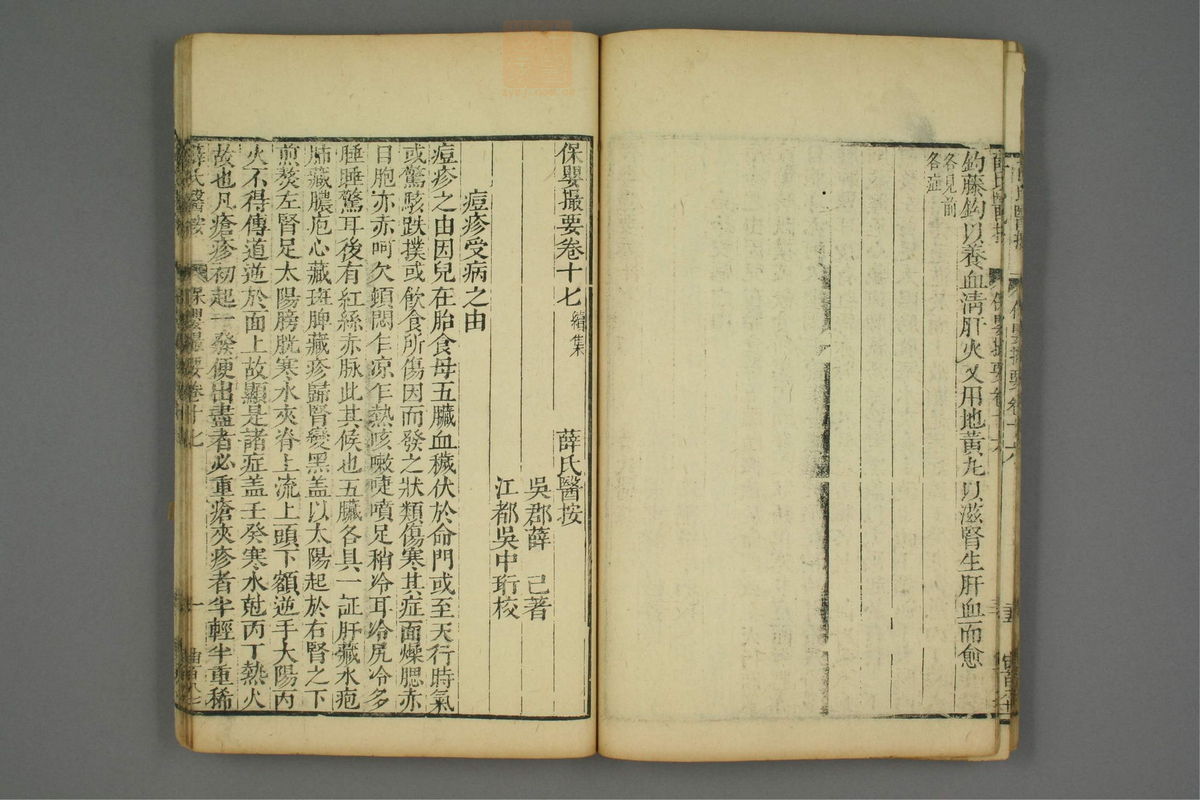 鈎藤鈎以養血淸肝火又用地黃丸以滋腎生肝血而愈
各見前
各症
保嬰撮要卷十七 續集 薛氏醫按
吳郡薛 己著
江都吳中珩校
痘疹受病之由
痘疹之由因兒在胎食母五臟血穢伏於命門或至天行時氣
或驚駭跌撲或飲食所傷因而發之狀類傷寒其症面燥腮赤
目胞亦赤呵欠頓悶乍凉乍熱咳嗽嚏噴足稍冷耳冷尻冷多
睡睡驚耳後有紅絲赤脉此其候也五臟各具一証肝藏水疱
肺藏膿疱心藏斑脾藏疹歸腎變黑盖以太陽起於右腎之下
煎熬左腎足太陽膀胱寒水夾脊上流上頭下額逆手太陽丙
火不得傳道逆於面上故顯是諸症盖壬癸寒水尅丙丁熱火
故也凡瘡疹初起一發便出盡者必重瘡夾疹者半輕半重稀
薛氏醫按 保嬰撮要卷十七 一